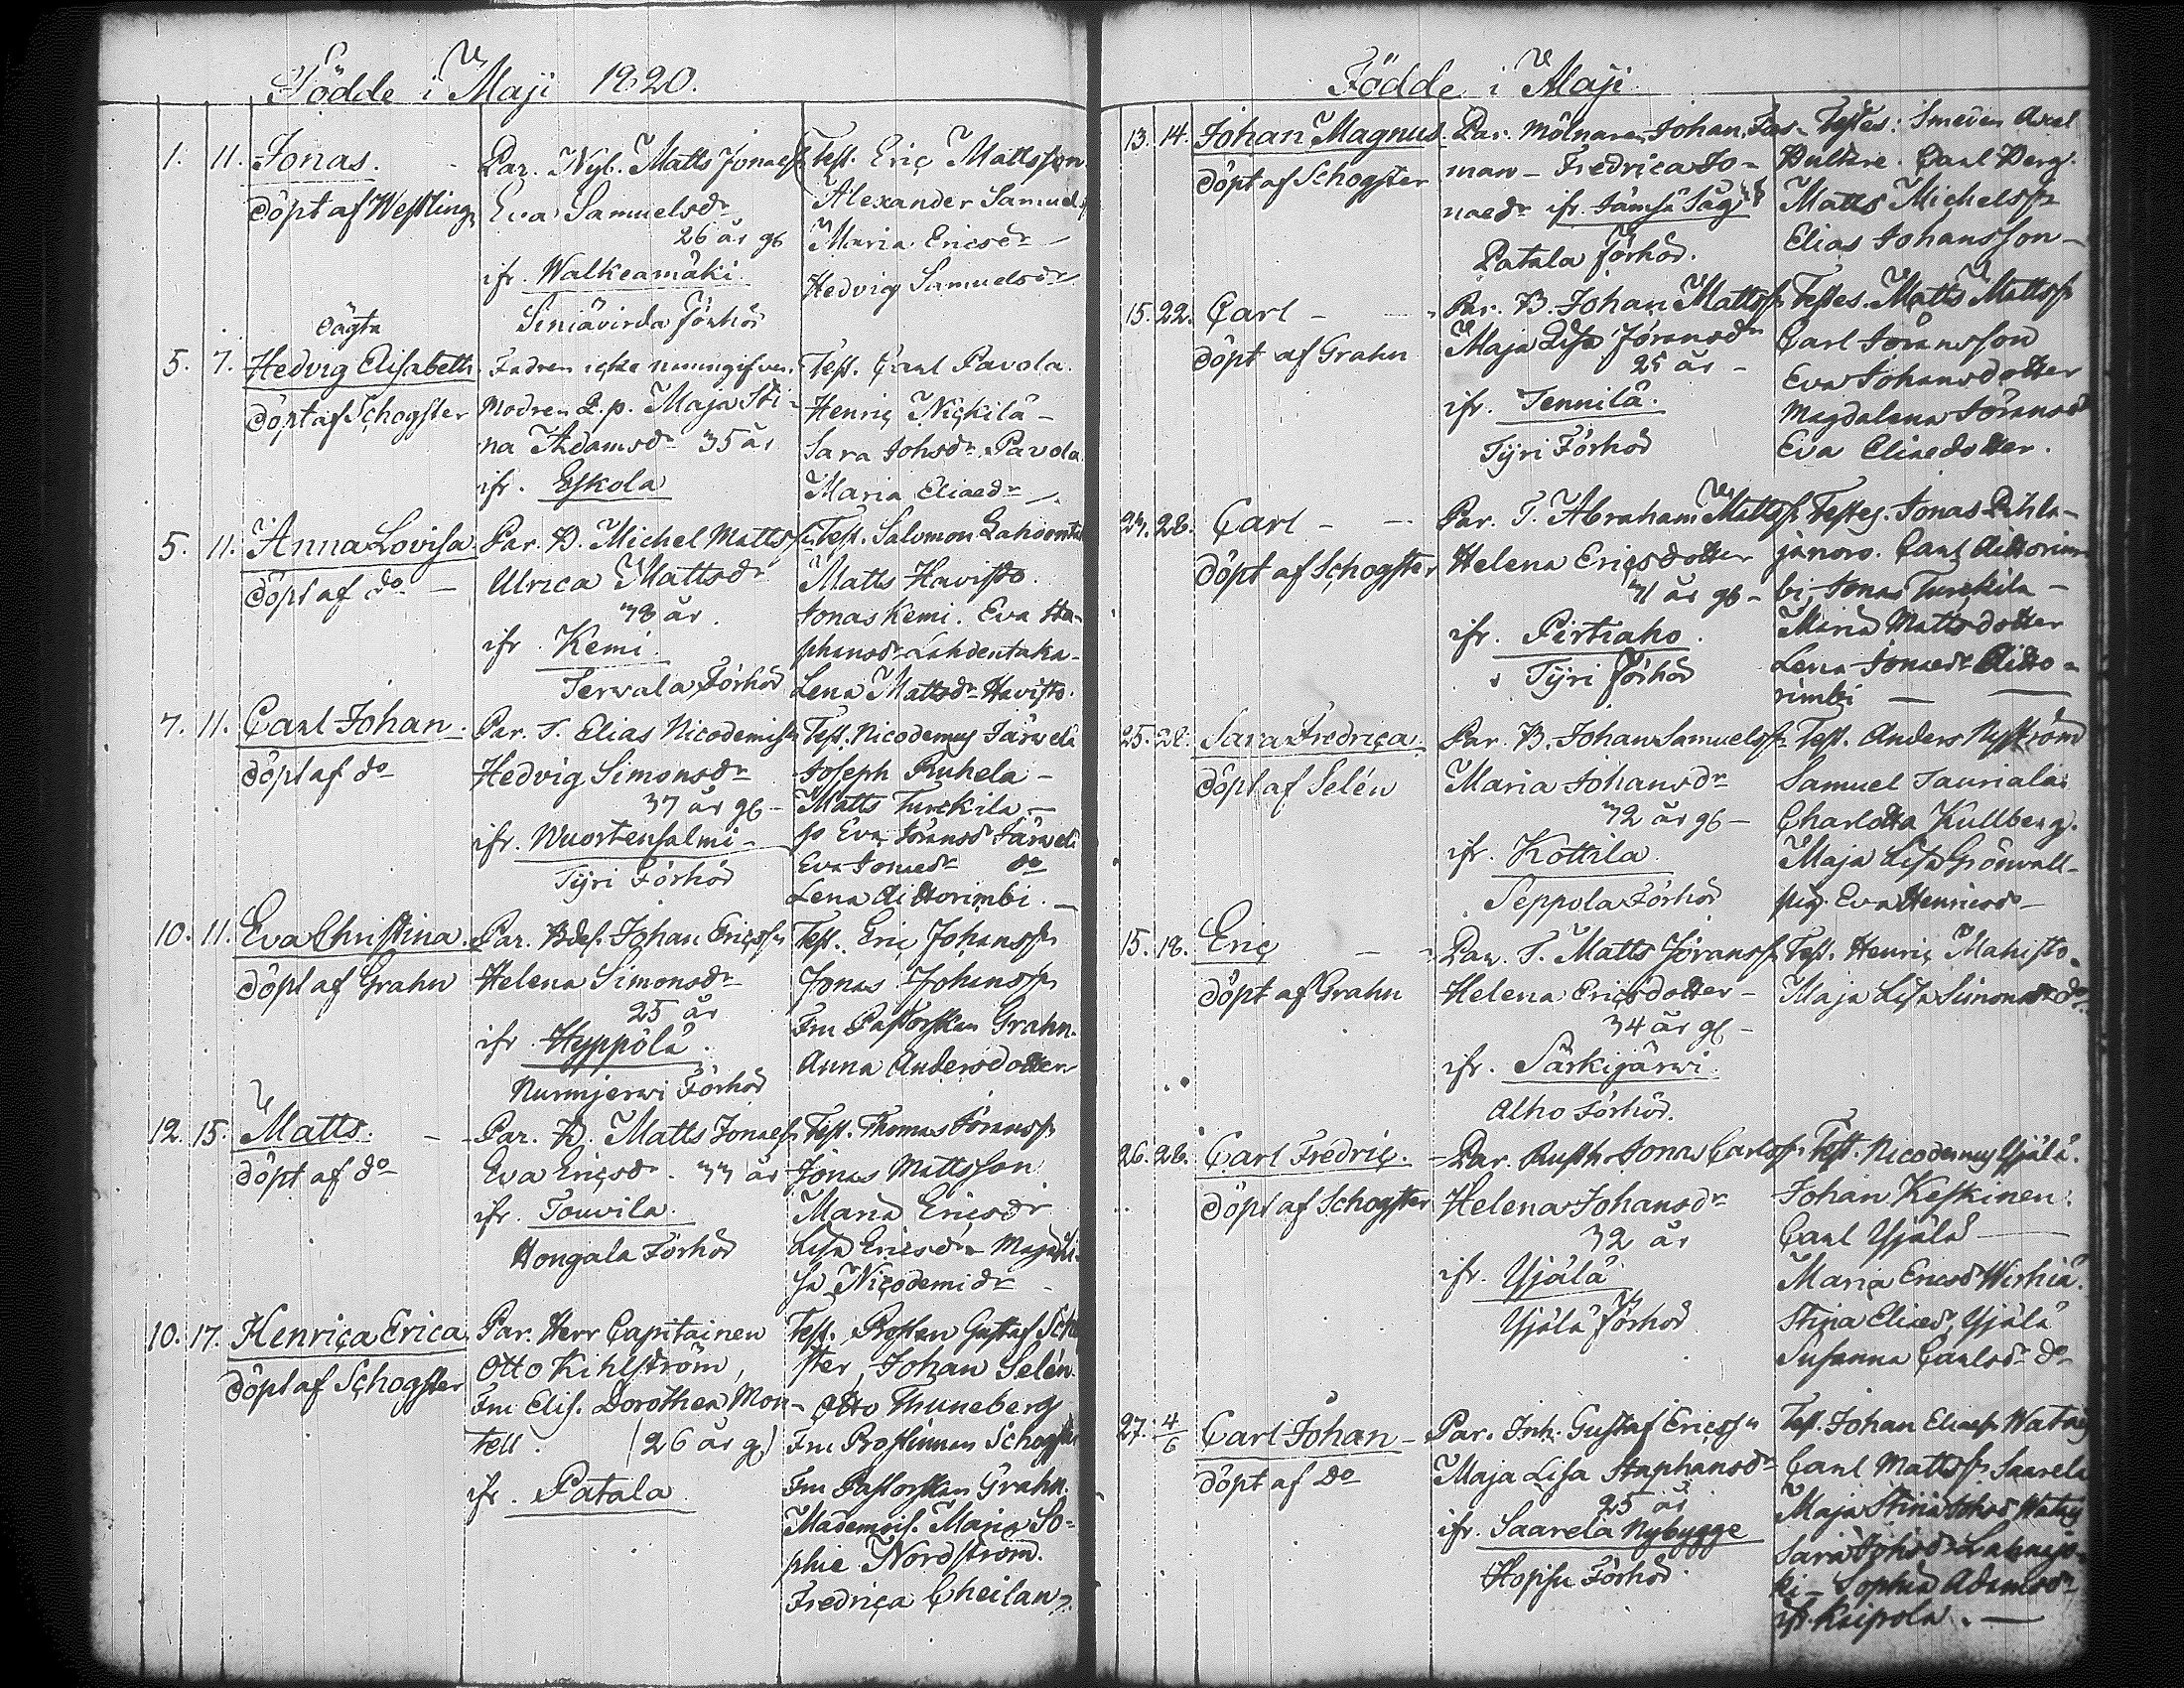 Födde i Maji 1820.
1. 11. Jonas.
döpt af Westling
Par. Nyb. Matts Jonaess.
Eva Samuelsdr
26 år gl
ifr. Walkeamäki.
Siniävirda förhör
Test. Eric Mattsson
Alexander Samuels
Maria Ericsdr
Hedvig Samuelsdr
oägta
5. 7. Hedvig Elisabeth
döpt af Schogster
Fadren icke namngifven.
Modren L. p. Maja Sti-
na Adamsdr 35 år
ifr. Eskola
Test. Carl Pavola.
Henric Nickilä
Sara Johsdr Pavola
Maria Eliaedr
5. 11. Anna Lovisa.
döpt af do
Par. B. Michel Mattss.
Ulrica Mattsdr
38 år.
ifr. Kemi.
Terwala Förhör
Test. Salomon
Matts Havisto.
Jonas Kemi. Eva Ste-
phansdr Lahdentaka-
Lena Mattsdr Havisto.
7. 11. Carl Johan.
döpt af do
Par. T. Elias Nicodemiss.
Hedvig Simonsdr
37 år gl -
ifr. Wuortensalmi -
Tÿri Förhör
Test. Nicodemus Järvelä
Joseph Ruhela -
Matts Turckila -
Eva Jöransdr Järvelä
Eva Jonaedr do
Lena Aittorimbi. -
10. 11. Eva Christina.
döpt af Grahn
Par. Bdes. Johan Ericss.
Helena Simonsdr
25 år
ifr. Hyppölä.
Nurmijerwi Förhör
Test. Eric Johanss.
Jonas Johanss.
Fru Pastorskan Grahn.
Anna Andersdotter
12. 15. Matts.
döpt af do
Par. B. Matts Jonaess.
Eva Ericsdr. 33 år
ifr. Touvila.
Hongala Förhör
Test. Thomas Jöranss.
Jonas Mattsson
Maria Ericsdr
Lisa Ericsdr Maja Li-
sa Nicodemidr -
10. 17. Henrica Erica.
döpt af Schogster
Par. Herr Capitainen
Otto Kihlström,
Fru Elis. Dorothea Mon-
tell. (26 år g)
ifr. Patala
Test. Prosten Gustaf Scho
ster, Johan Selén.
Otto Thuneberg
Fru Prostinnan Schogster
Fru Pastorskan Grahn.
Mademois. Maria So-
phie Nordström.
Fredrica Cheilan
Födde i Maji
13. 14. Johan Magnus.
döpt af Schogster
Par. Mölnaren Johan Fors-
man - Fredrica Jo-
naedr ifr. Jämsä Såg
Patala förhör.
Testes: Smeden Axel
Carl Berg.
Matts Michelss.
Elias Johansson -
15. 22. Carl -
döpt af Grahn
Par. B. Johan Mattss.
Maja Lisa Jöransdr
25 år -
ifr. Tennilä.
Tÿri Förhör
Testes. Matts Mattss.
Carl Jöransson
Eva Johansdotter
Magdalena Jöransdr
Eva Eliaedotter.
24. 28. Carl -
döpt af Schogster
Par. T. Abraham Mattss.
Helena Ericsdotter
31 år gl -
ifr. Pirttiaho.
Tÿri Förhör
Testes. Jonas Pihla-
janoro. Carl Aittorim-
bi, Jonas Turckila -
Maria Mattsdotter
Lena Jonaedr Aitto-
rimbi -
25. 28. Sara Fredrica.
döpt af Selén
Par. B. Johan Samuelss.
Maria Johansdr
32 år gl -
ifr. Kottila.
Seppola Förhör
Test. Anders Nyström
Samuel Tauriala
Charlotta Kullberg.
Maja Lisa Grönvall -
pig. Eva Henricsdr -
15. 18. Eric
döpt af Grahn
Par. T. Matts Jöranss.
Helena Ericsdotter -
34 år gl -
ifr. Särkijärwi.
Alho förhör.
Test. Henric Mahisto
Maja Lisa Simonsdr do
26. 28. Carl Fredric.
döpt af Schogster
Par. Rusth. Jonas Carlss.
Helena Johansdr
32 år
ifr. Yjälä
Yjälä förhör
Test. Nicodemus Yjälä.
Johan Keskinen.
Carl Yjälä
Maria Ericsdr Wirhiä.
Stina Eliaedr Yjälä
Susanna Carlsdr do
27. 4/6 Carl Johan -
döpt af do
Par. Inh. Gustaf Ericss.
Maja Lisa Staphansdr
25 år
ifr. Saarela Nybygge
Hopsu Förhör.
Test. Johan Eliaess.
Carl Mattss. Saarela
Maja Stina
Sara Johsdr
ki - Sophia Adamsdr
ifr. Kaipola. -